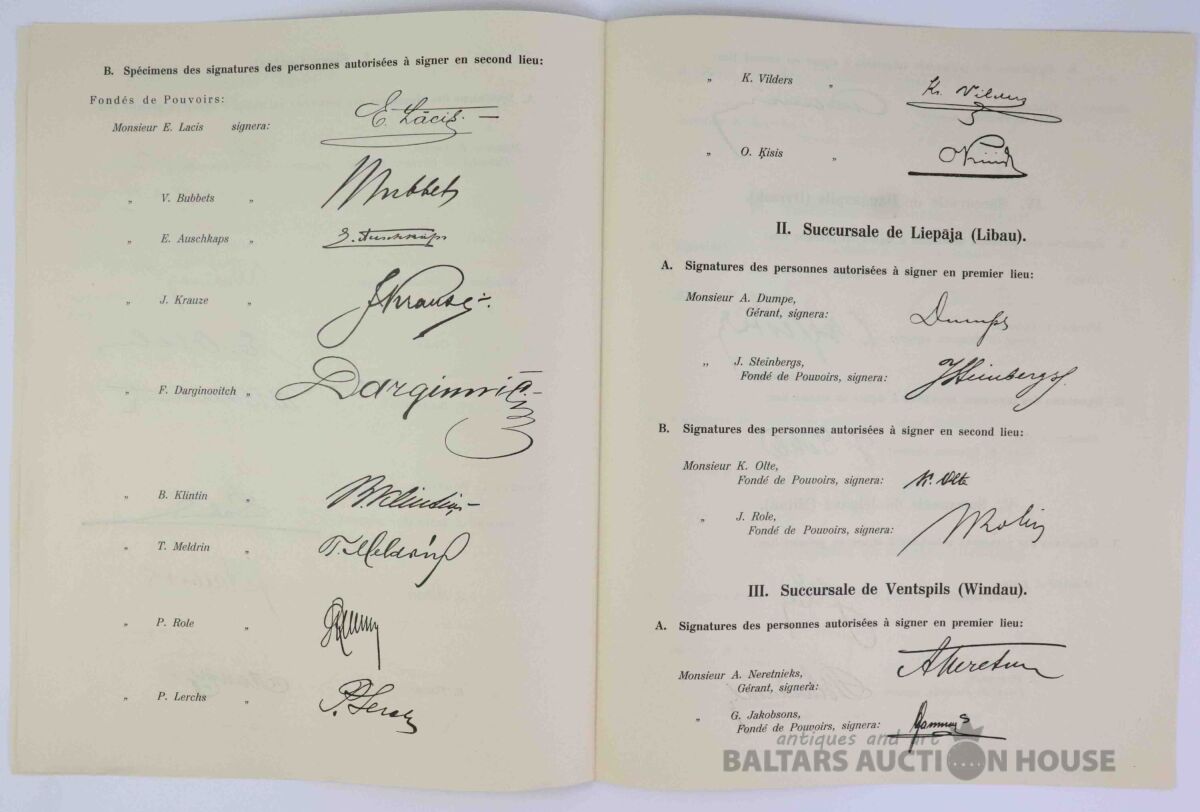 B. Spécimens des signatures des personnes autorisées à signer en second lieu:
Fondés de Pouvoirs:
Monsieur E. Lacis signera: E. Lācis.
„ V. Bubbets „ Bubbets
„ E. Auschkaps „ E. Auschkaps
„ J. Krauze „ J Krause
„ F. Darginovitch „
„ B. Klintin „
„ T. Meldrin „ T. Meldriņ
„ P. Role „
„ P. Lerchs „ P. Lerchs
„ K. Vilders „ Kr. Vilders
„ O. Ķisis „
II. Succursale de Liepāja (Libau).
A. Signatures des personnes autorisées à signer en premier lieu:
Monsieur A. Dumpe,
Gérant, signera: Dumpe
„ J. Steinbergs,
Fondé de Pouvoirs, signera: J Steinbergs
B. Signatures des personnes autorisées à signer en second lieu:
Monsieur K. Olte,
Fondé de Pouvoirs, signera: K. Olte
„ J. Role,
Fondé de Pouvoirs, signera:
III. Succursale de Ventspils (Windau).
A. Signatures des personnes autorisées à signer en premier lieu:
Monsieur A. Neretnieks,
Gérant, signera:
„ G. Jakobsons,
Fondé de Pouvoirs, signera:
antiques and art
BALTARS AUCTION HOUSE